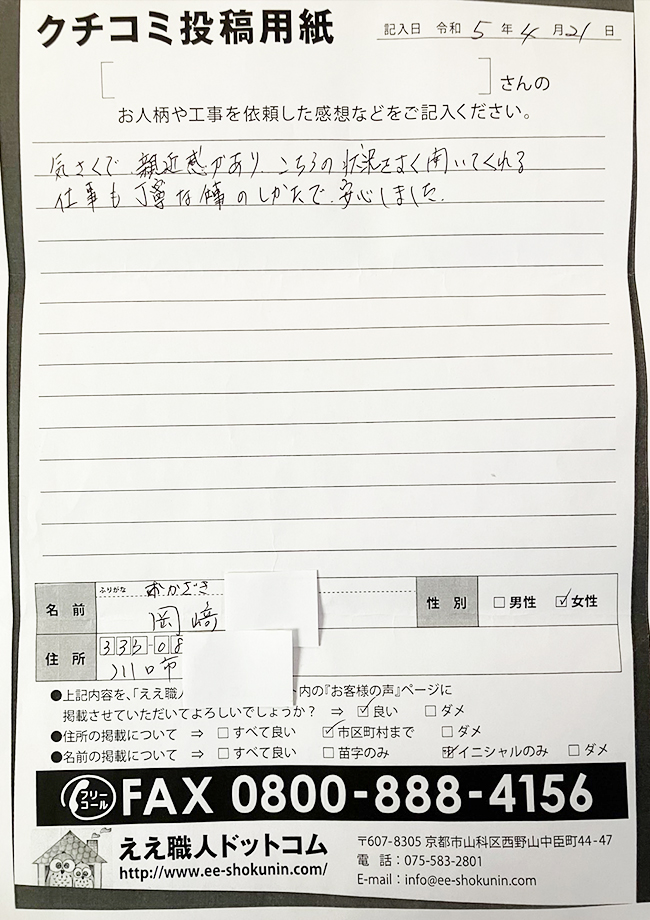 クチコミ投稿用紙
記入日 令和 5 年 4 月 21 日
[ ] さんの
お人柄や工事を依頼した感想などをご記入ください。
気さくで、親近感があり、こちらの状況をよく聞いてくれる
仕事も丁寧な仕事のしかたで、安心しました。
ふりがな おかざき
名前 岡﨑
性別 □男性 ☑女性
住所 333-08
川口市
●上記内容を、「ええ職人 ト内の『お客様の声』ページに
掲載させていただいてよろしいでしょうか? ⇒ ☑良い □ダメ
●住所の掲載について ⇒ □すべて良い ☑市区町村まで □ダメ
●名前の掲載について ⇒ □すべて良い □苗字のみ ☑イニシャルのみ □ダメ
フリーコール FAX 0800-888-4156
ええ職人ドットコム
http://www.ee-shokunin.com/
〒607-8305 京都市山科区西野山中臣町44-47
電話:075-583-2801
E-mail:info@ee-shokunin.com